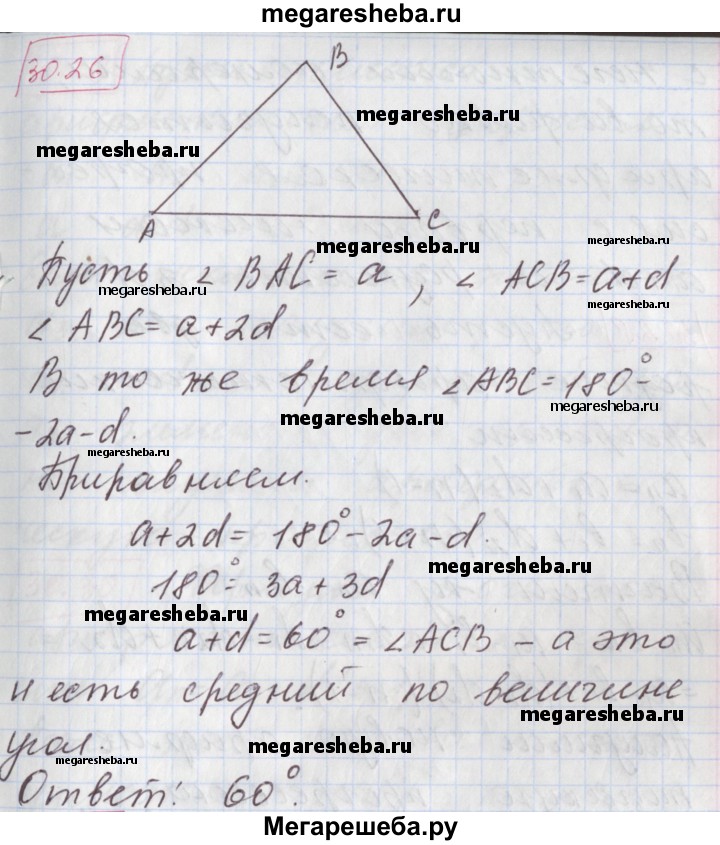 megaresheba.ru
30.26
B
megaresheba.ru
megaresheba.ru
A
C
megaresheba.ru
megaresheba.ru
Пусть ∠ BAC = a, ∠ ACB = a+d
megaresheba.ru
megaresheba.ru
∠ ABC = a+2d
В то же время ∠ABC = 180° -
megaresheba.ru
megaresheba.ru
-2a-d.
Приравняем.
a+2d = 180° - 2a - d.
megaresheba.ru
180° = 3a + 3d
megaresheba.ru
a+d = 60° = ∠ACB - а это
и есть средний по величине
megaresheba.ru
угол.
megaresheba.ru
megaresheba.ru
Ответ: 60°.
megaresheba.ru
Мегарешеба.ру